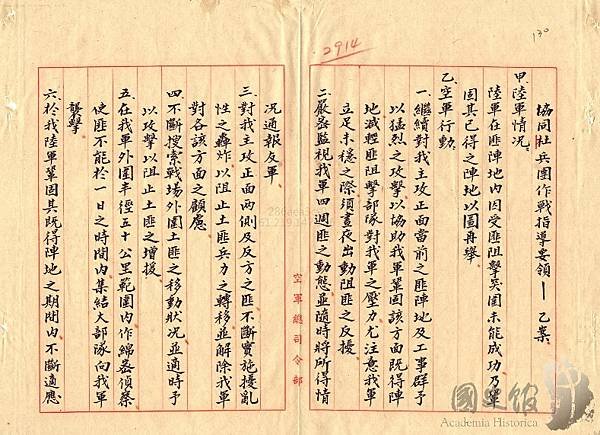 130
2914
協同杜兵團作戰指導要領——乙案
甲.陸軍情況。
陸軍在匪陣地內因受匪阻擊突圍未能成功乃鞏
固其已得之陣地以圖再舉
乙.空軍行動。
一.繼續對我主攻正面當前之匪陣地及工事群予
以猛烈之攻擊以協助我軍鞏固該方面既得陣
地減輕匪阻擊部隊對我軍之壓力尤注意我軍
立足未穩之際須晝夜出動阻匪之反擾
二.嚴密監視我軍四週匪之動態並隨時將所得情
況通報友軍
三.對我主攻正面兩側及反方之匪不斷實施擾亂
性之轟炸以阻止土匪兵力之轉移並解除我軍
對各該方面之顧慮
四.不斷搜索戰場外圍土匪之移動狀況並適時予
以攻擊以阻止土匪之增援
五.在我軍外圍半徑五十公里範圍內作綿密偵察
使匪不能於一日之時間內集結大部隊向我軍
襲擊
六.於我陸軍鞏固其既得陣地之期間內不斷適應
空軍總司令部
國史館
Academia Historica